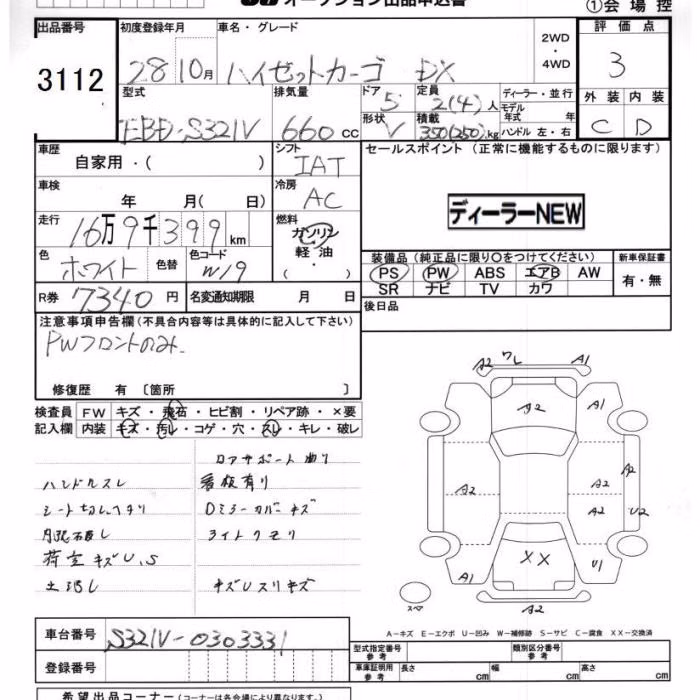 オークション出品申込書
①会場控
出品番号 初度登録年月 車名・グレード 評価点
3112 28 10月 ハイゼットカーゴ DX 2WD ・ 4WD 3
型式 排気量 ドア 5 定員 2(4)人 ディーラー・並行 外装 内装
EBD-S321V 660 cc 形状 V 積載 350(250)kg モデル年式 年式 ハンドル 左・右 C D
車歴 自家用・( ) シフト IAT セールスポイント (正常に機能するものに限ります)
車検 年 月( 日) 冷房 AC
ディーラーNEW
走行 16万9千399km 燃料 ガソリン 軽油 ( ・ )
色 ホワイト 色替 色コード W19 装備品 (純正品に限り○をつけてください) 新車保証書
PS PW ABS エアB AW 有・無
SR ナビ TV カワ
R券 7340円 名変通知期限 月 日 後日品
注意事項申告欄(不具合内容等は具体的に記入して下さい)
PWフロントのみ.
修復歴 有 〔箇所 〕
検査員 FW キズ・飛石・ヒビ割・リペア跡・×要
記入欄 内装 キズ・汚レ・コゲ・穴・スレ・キレ・破レ
ロアサポート曲り
ハンドルスレ 看板有り
シート切レ、ヘタリ Dミラーカバーキズ
ライトクモリ
荷室キズU、S
キズUスリキズ
A2 ワレ A1
A2 A1
A2 A2 A2
A2 U2
XX
A1 U1
スペア A2
A-キズ E-エクボ U-凹み W-補修跡 S-サビ C-腐食 XX-交換済
車台番号 S321V-0303331 型式指定番号 参考 類別区分番号 参考
登録番号 車庫証明用 参考 長さ cm 幅 cm 高さ cm
希望出品コーナー (コーナーは各会場により異なります。)